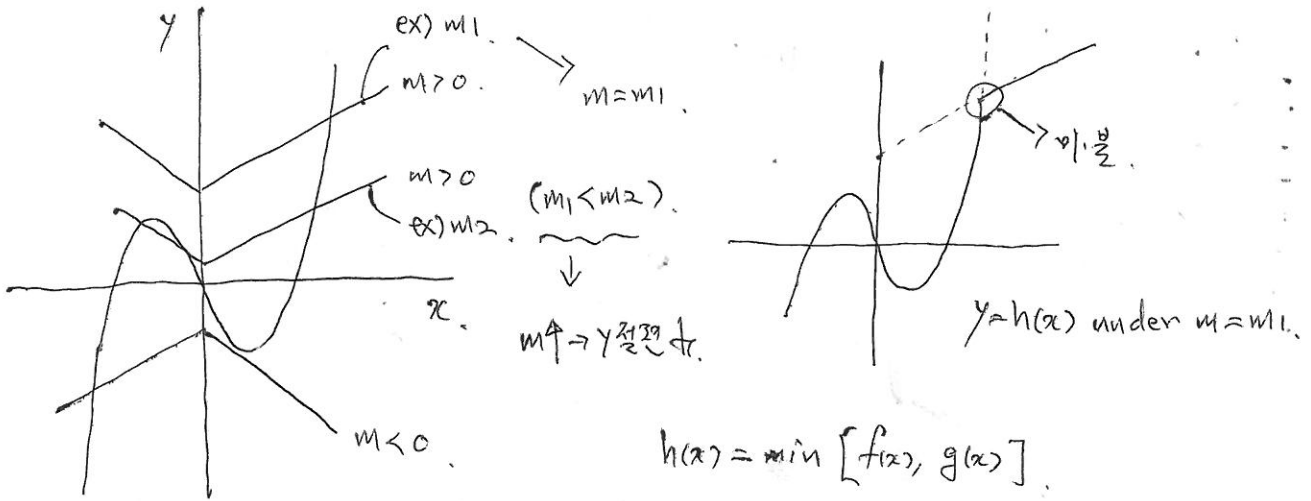 y
ex) m1.
m>0.
m=m1.
m>0
ex) m2.
(m1<m2).
m↑→y절편↓.
x.
m<0.
미·불.
y=h(x) under m=m1.
h(x)=min [f(x), g(x)].